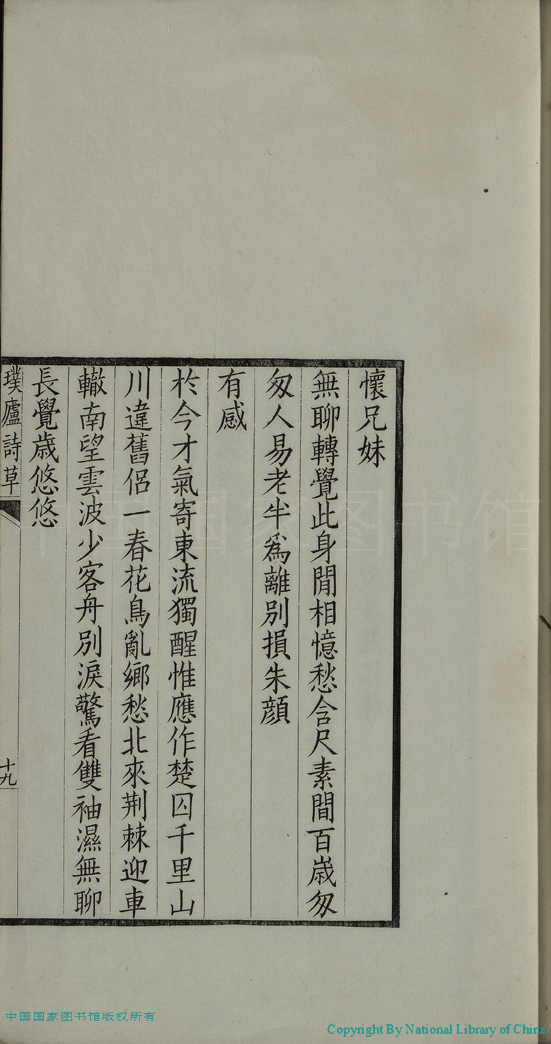 懷兄妹
無聊轉覺此身閒相憶愁含尺素間百歲匆
匆人易老半爲離別損朱顔
有感
於今才氣寄東流獨醒惟應作楚囚千里山
川違舊侣一春花鳥亂鄉愁北來荆棘迎車
轍南望雲波少客舟別淚驚看雙袖濕無聊
長覺歲悠悠
璞廬詩草
十九
中国国家图书馆
中国国家图书馆版权所有
Copyright By National Library of China